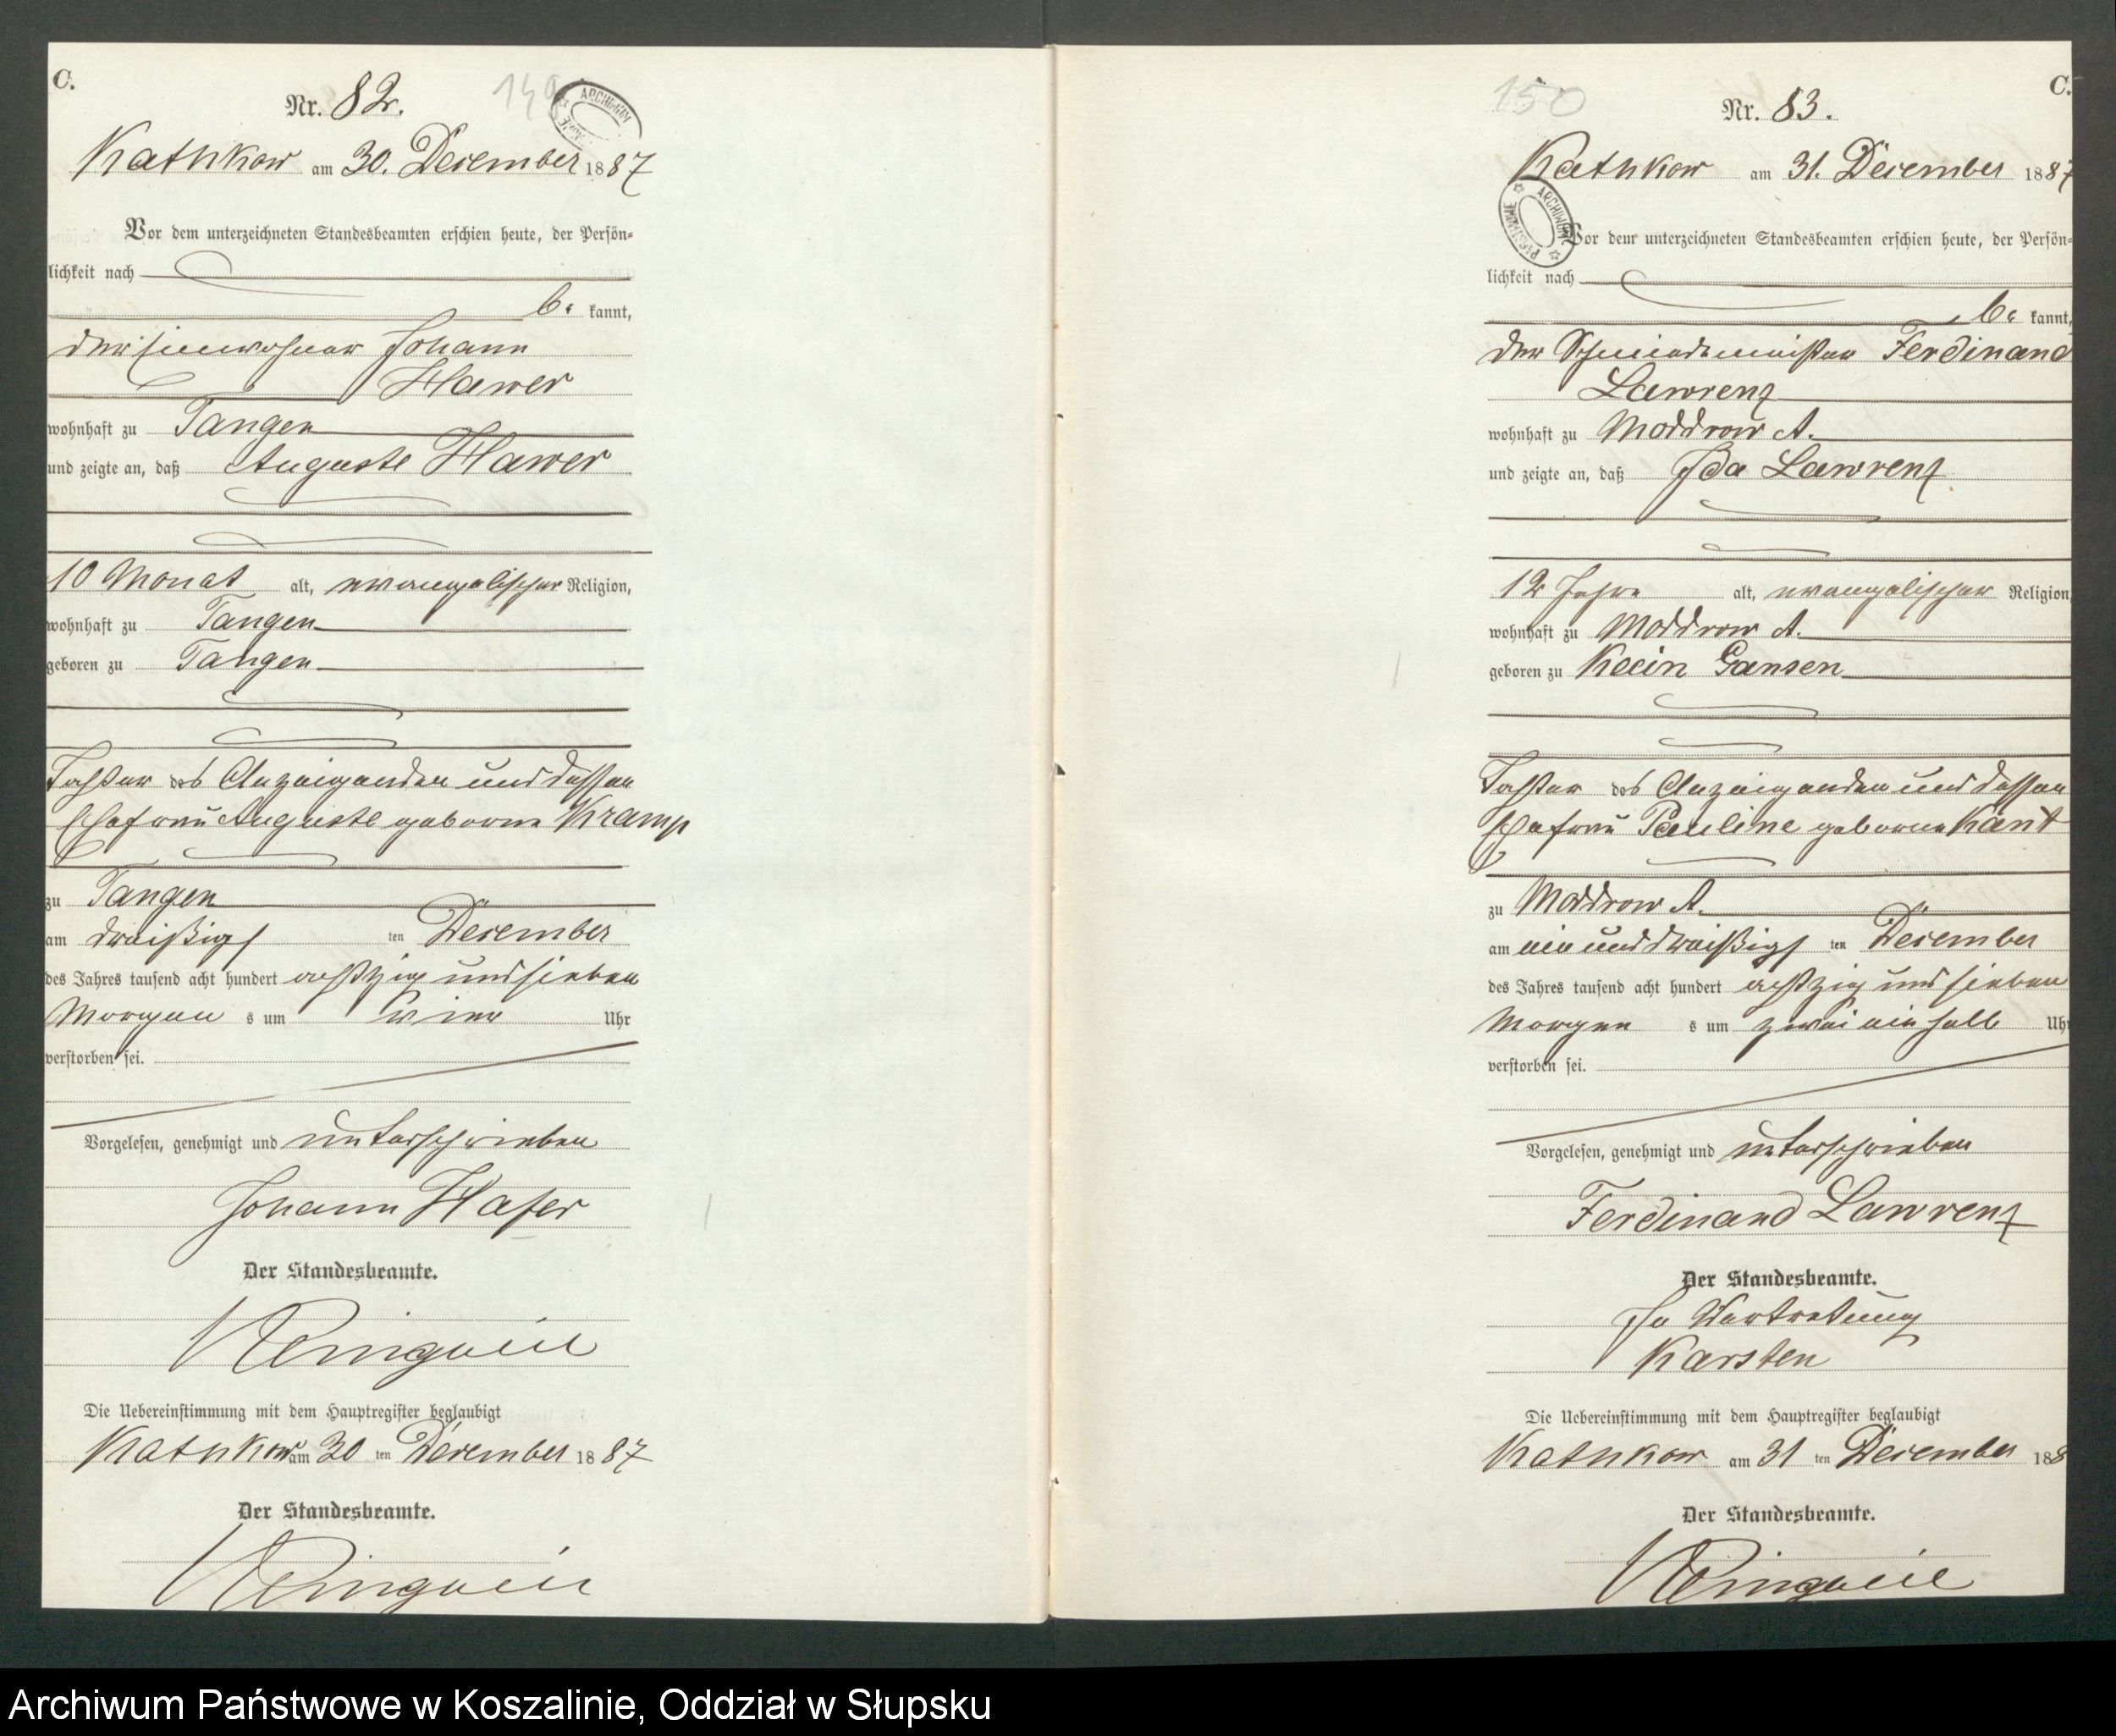 C.
Nr. 82.
149
ARCHIWUM
Kathkow am 30. December 1887
Vor dem unterzeichneten Standesbeamten erschien heute, der Persön=
lichkeit nach
be kannt,
der Einwohner Johann
Hawer
wohnhaft zu Tangen
und zeigte an, daß Auguste Hawer
10 Monat alt, evangelischer Religion,
wohnhaft zu Tangen
geboren zu Tangen
Tochter des Anzeigenden und dessen
Ehefrau Auguste geborne Kramp
zu Tangen
am dreißigs ten December
des Jahres tausend acht hundert achtzig und sieben
Morgen s um Uhr
verstorben sei.
Vorgelesen, genehmigt und unterschrieben
Johann Hafer
Der Standesbeamte.
Die Uebereinstimmung mit dem Hauptregister beglaubigt
Kathkow am 30 ten December 1887
Der Standesbeamte.
C.
150
Nr. 83.
Kathkow am 31. December 1887
ARCHIWUM PAŃSTWOWE
Vor dem unterzeichneten Standesbeamten erschien heute, der Persön=
lichkeit nach
be kannt,
der Schmiedemeister Ferdinand
Lawrenz
wohnhaft zu Moddrow A.
und zeigte an, daß Ida Lawrenz
12 Jahre alt, evangelischer Religion,
wohnhaft zu Moddrow A.
geboren zu Klein Gansen
Tochter des Anzeigenden und dessen
Ehefrau Pauline geborne Kant
zu Moddrow A.
am ein und dreißigs ten December
des Jahres tausend acht hundert achtzig und sieben
Morgen s um zwei ein halb Uhr
verstorben sei.
Vorgelesen, genehmigt und unterschrieben
Ferdinand Lawrenz
Der Standesbeamte.
In Vertretung
Karsten
Die Uebereinstimmung mit dem Hauptregister beglaubigt
Kathkow am 31 ten December 188
Der Standesbeamte.
Archiwum Państwowe w Koszalinie, Oddział w Słupsku